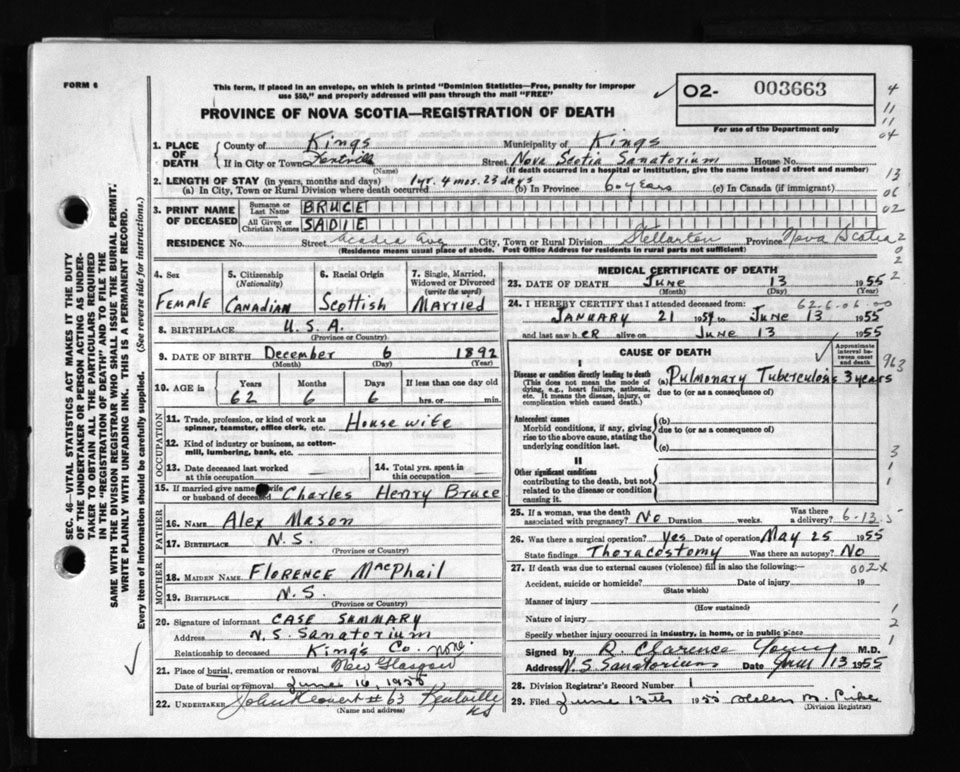 FORM 6
This form, if placed in an envelope, on which is printed "Dominion Statistics—Free, penalty for improper
use $50," and properly addressed will pass through the mail "FREE"
PROVINCE OF NOVA SCOTIA—REGISTRATION OF DEATH
02- 003663
For use of the Department only
1. PLACE OF DEATH
County of Kings Municipality of Kings
If in City or Town Kentville Street Nova Scotia Sanatorium House No.
(Name) (If death occurred in a hospital or institution, give the name instead of street and number)
2. LENGTH OF STAY (in years, months and days) 1 yr. 4 mos. 23 days 60 years
(a) In City, Town or Rural Division where death occurred (b) In Province (c) In Canada (if immigrant)
3. PRINT NAME OF DECEASED
Surname or Last Name BRUCE
All Given or Christian Names SADIE
RESIDENCE No. Street Acadia Ave City, Town or Rural Division Stellarton Province Nova Scotia
(Residence means usual place of abode. Post Office Address for residents in rural parts not sufficient)
4. Sex Female
5. Citizenship (Nationality) Canadian
6. Racial Origin Scottish
7. Single, Married, Widowed or Divorced (write the word) Married
8. BIRTHPLACE U.S.A.
(Province or Country)
9. DATE OF BIRTH December 6 1892
(Month) (Day) (Year)
10. AGE in Years Months Days If less than one day old
62 6 6 hrs. or min.
OCCUPATION
11. Trade, profession, or kind of work as
spinner, teamster, office clerk, etc. Housewife
12. Kind of industry or business, as cotton-
mill, lumbering, bank, etc.
13. Date deceased last worked
at this occupation
14. Total yrs. spent in
this occupation
15. If married give name wife
or husband of deceased Charles Henry Bruce
FATHER
16. NAME Alex Mason
17. BIRTHPLACE N.S.
(Province or Country)
MOTHER
18. MAIDEN NAME Florence MacPhail
19. BIRTHPLACE N.S.
(Province or Country)
20. Signature of informant CASE SUMMARY
Address N.S. Sanatorium
Relationship to deceased Kings Co. None
21. Place of burial, cremation or removal New Glasgow
Date of burial or removal June 16, 1955
22. UNDERTAKER John # 63 Kentville
NS
(Name and address)
MEDICAL CERTIFICATE OF DEATH
23. DATE OF DEATH June 13 1955
(Month) (Day) (Year)
62-6-06-00
24. I HEREBY CERTIFY that I attended deceased from:
January 21 1954 to June 13 1955
and last saw her alive on June 13 1955
CAUSE OF DEATH
Approximate interval between onset and death
I
Disease or condition directly leading to death
(This does not mean the mode of
dying, e.g., heart failure, asthenia,
etc. It means the disease, injury, or
complication which caused death.)
(a) Pulmonary Tuberculosis 3 years
due to (or as a consequence of)
Antecedent causes
Morbid conditions, if any, giving
rise to the above cause, stating the
underlying condition last.
(b)
due to (or as a consequence of)
(c)
II
Other significant conditions
contributing to the death, but not
related to the disease or condition
causing it.
25. If a woman, was the death
associated with pregnancy? No Duration weeks. Was there a delivery? 6-13-5
26. Was there surgical operation? Yes Date of operation May 25 1955
State findings Thoracostomy Was there an autopsy? No
27. If death was due to external causes (violence) fill in also the following:— 002X
Accident, suicide or homicide? Date of injury 19
(State which)
Manner of injury
(How sustained)
Nature of injury
Specify whether injury occurred in industry, in home, or in public place
Signed by R. Clarence Young M.D.
Address N.S. Sanatorium Date June 13 1955
28. Division Registrar's Record Number 1
29. Filed June 13th 1955 Helen M.
(Division Registrar)
SEC. 46—VITAL STATISTICS ACT MAKES IT THE DUTY
OF THE UNDERTAKER OR PERSON ACTING AS UNDER-
TAKER TO OBTAIN ALL THE PARTICULARS REQUIRED
IN THE "REGISTRATION OF DEATH" AND TO FILE THE
SAME WITH THE DIVISION REGISTRAR WHO SHALL ISSUE THE BURIAL PERMIT.
WRITE PLAINLY WITH UNFADING INK. THIS IS A PERMANENT RECORD.
Every item of information should be carefully supplied. (See reverse side for instructions.)
4
11
11
04
13
06
02
2
0
2
2
963
3
1
1
1
2
1